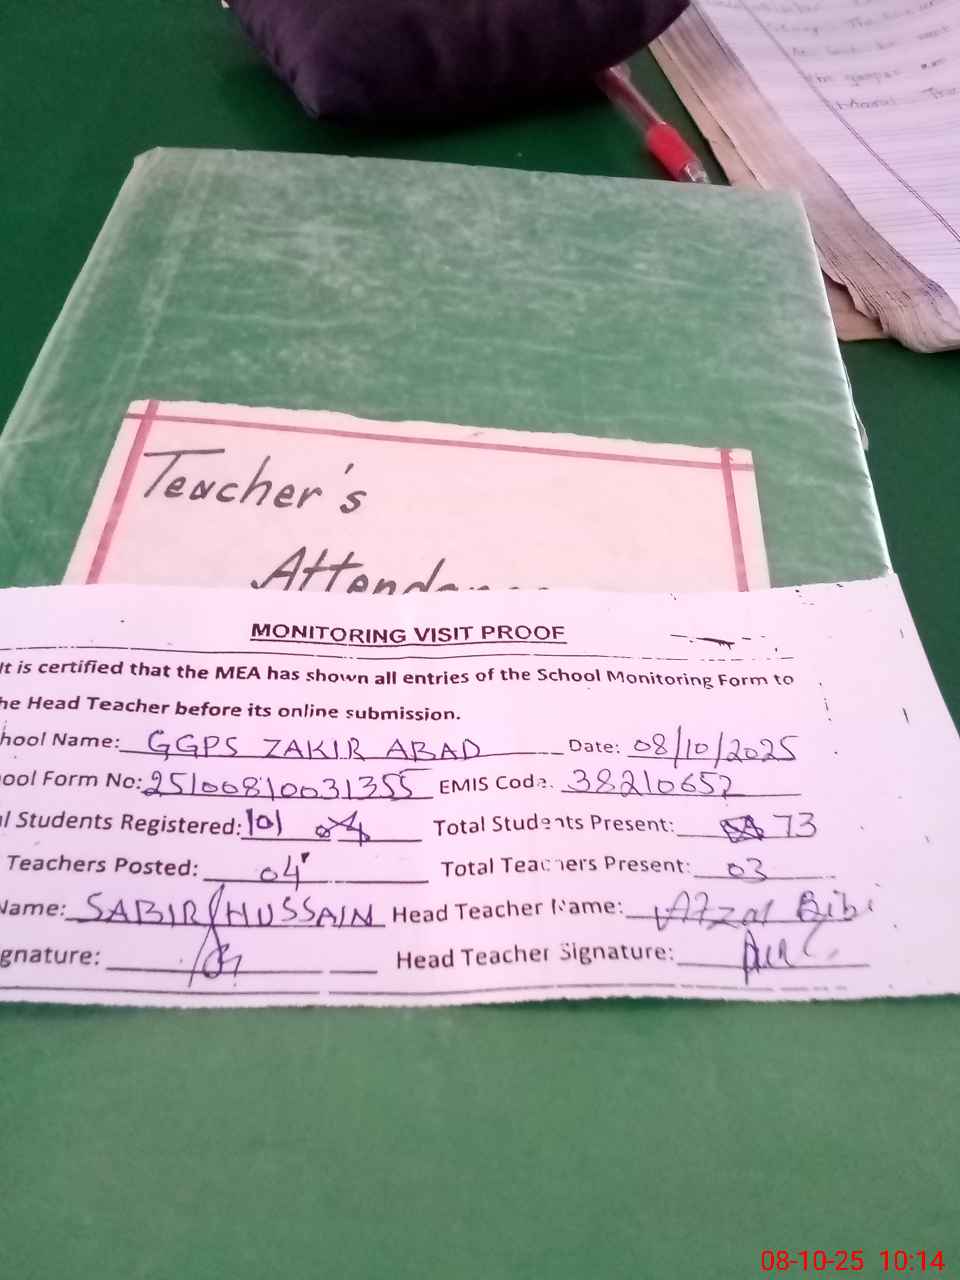 Teacher's
Attendance
MONITORING VISIT PROOF
It is certified that the MEA has shown all entries of the School Monitoring Form to
he Head Teacher before its online submission.
hool Name: GGPS ZAKIR ABAD Date: 08/10/2025
ool Form No: 25100810031355 EMIS Code: 38210652
l Students Registered: 101 Total Students Present: 73
Teachers Posted: 04 Total Teachers Present: 03
Name: SABIR HUSSAIN Head Teacher Name: Afzal Bibi
gnature: Head Teacher Signature:
08-10-25 10:14